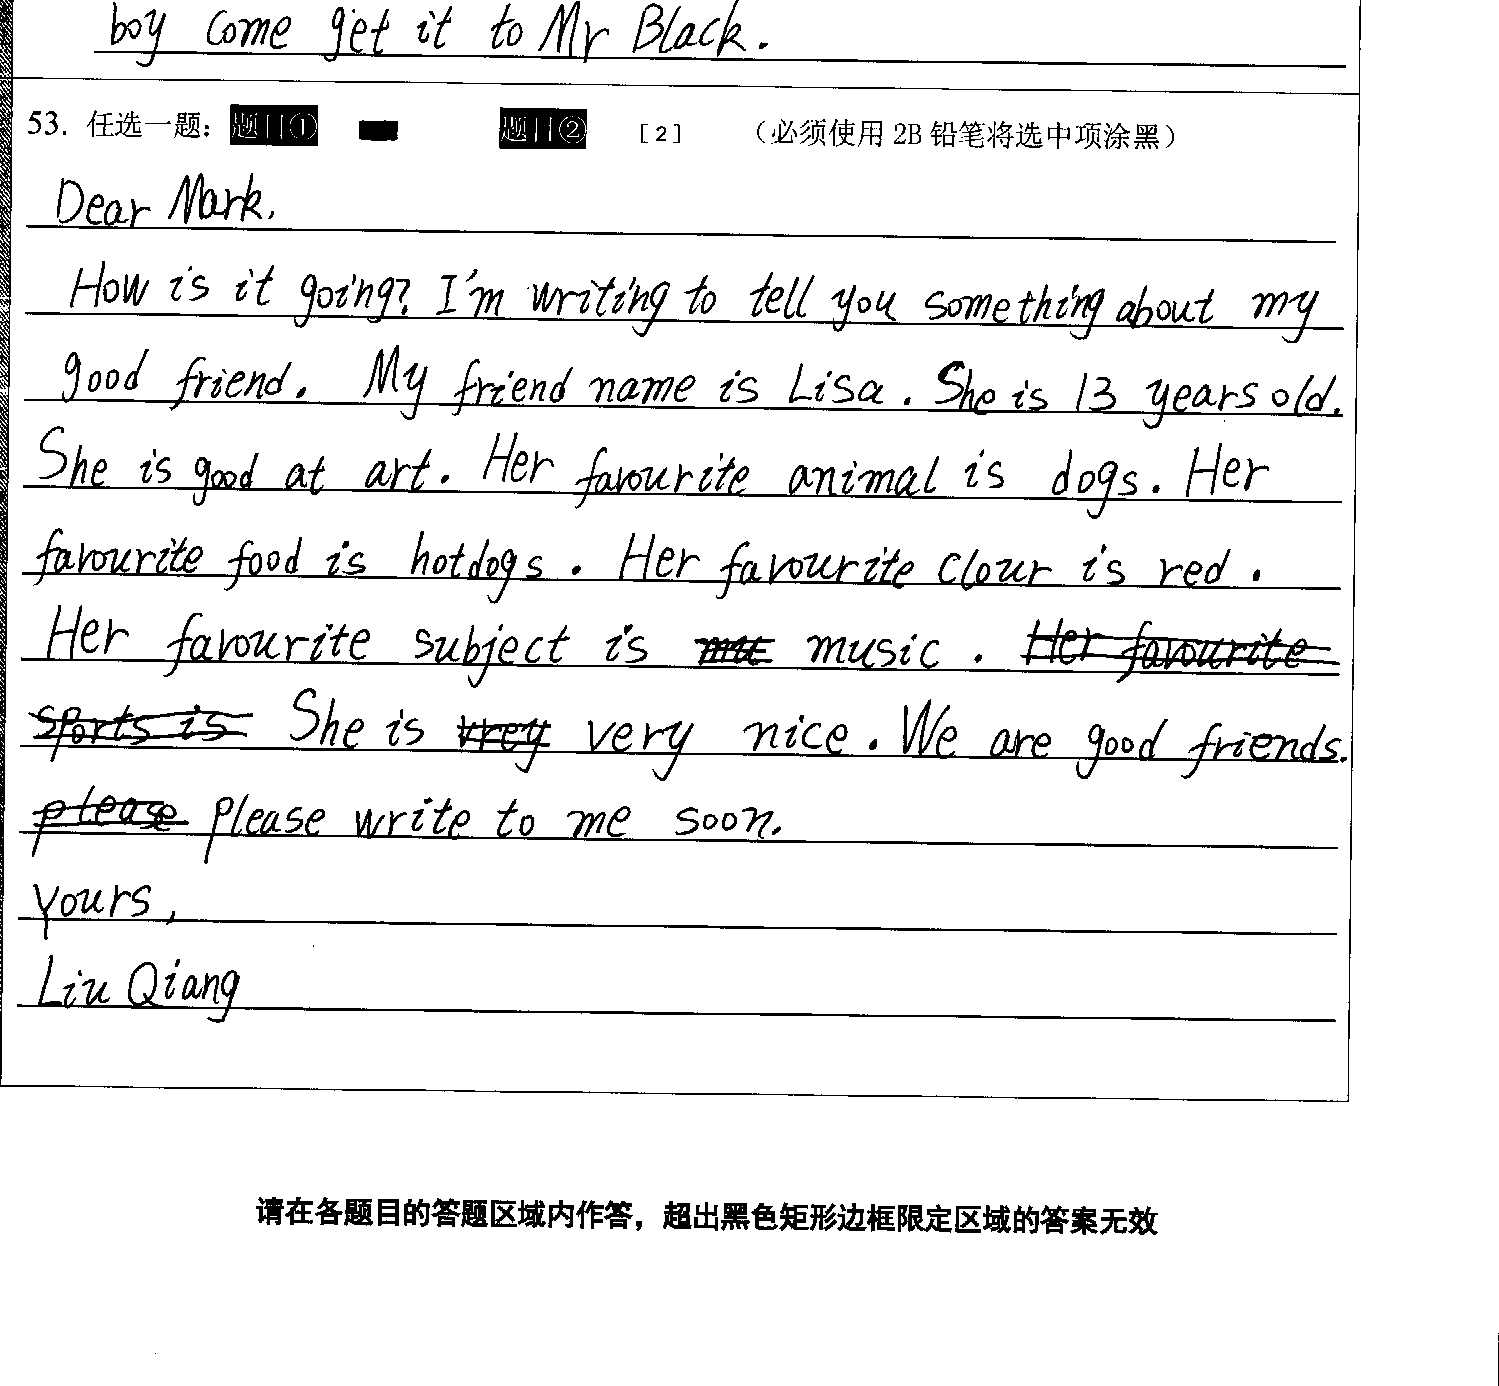 boy come get it to Mr Black.
53. 任选一题: 题目① 题目② [2] （必须使用 2B 铅笔将选中项涂黑）
Dear Mark,
How is it going? I'm writing to tell you something about my
good friend. My friend name is Lisa. She is 13 years old.
She is good at art. Her favourite animal is dogs. Her
favourite food is hotdogs. Her favourite clour is red.
Her favourite subject is mu music. Her favourite
sports is She is vrey very nice. We are good friends.
please please write to me soon.
Yours,
Liu Qiang
请在各题目的答题区域内作答，超出黑色矩形边框限定区域的答案无效